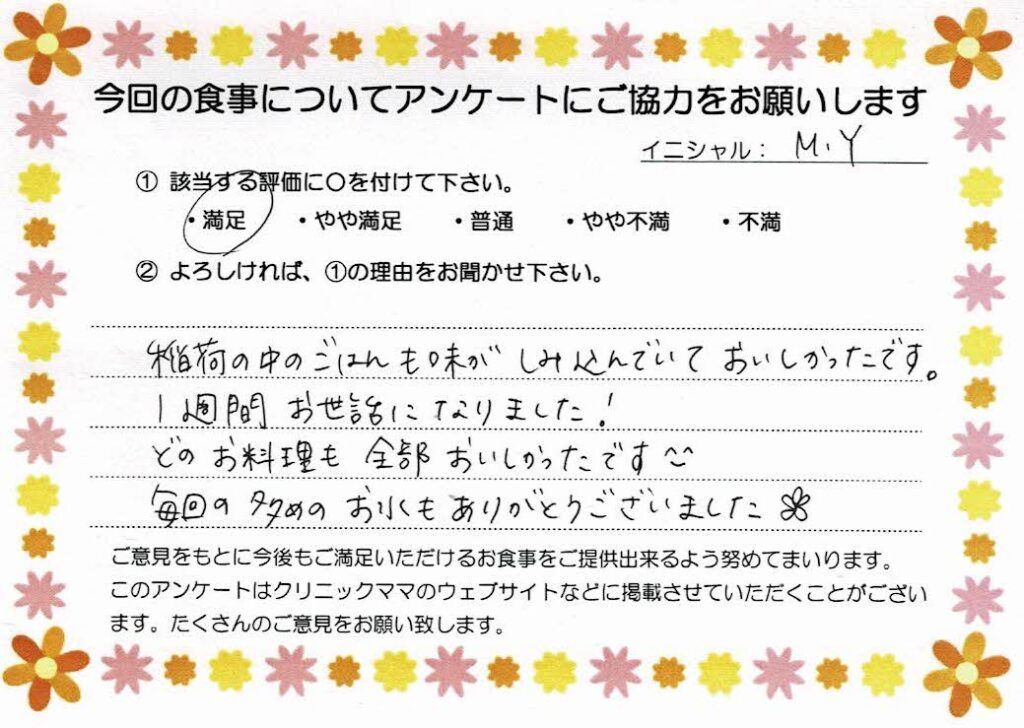 今回の食事についてアンケートにご協力をお願いします
イニシャル： M.Y
① 該当する評価に〇を付けて下さい。
・満足 ・やや満足 ・普通 ・やや不満 ・不満
② よろしければ、①の理由をお聞かせ下さい。
稲荷の中のごはんも味がしみ込んでいておいしかったです。
1週間お世話になりました!
どのお料理も全部おいしかったです
毎回の多めのお水もありがとうございました
ご意見をもとに今後もご満足いただけるお食事をご提供出来るよう努めてまいります。
このアンケートはクリニックママのウェブサイトなどに掲載させていただくことがござい
ます。たくさんのご意見をお願い致します。